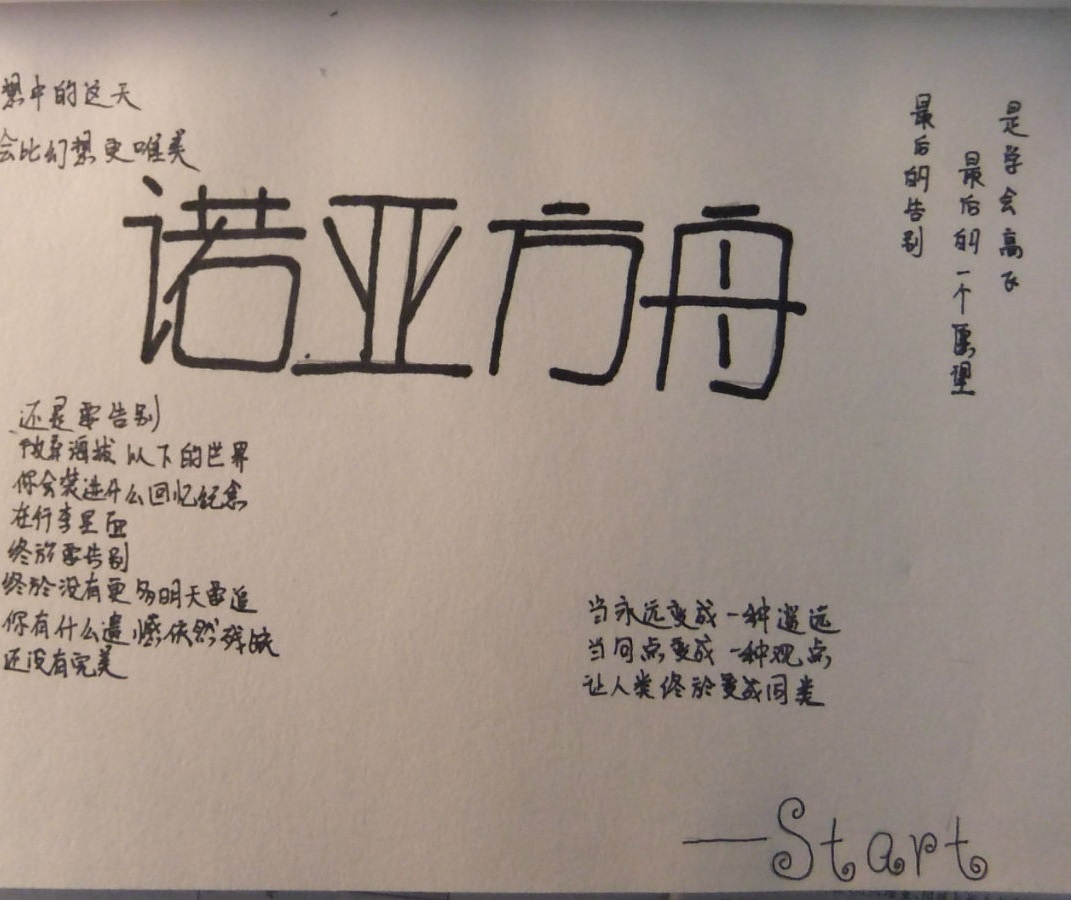 想中的这天
会比幻想更唯美
诺亚方舟
最后的告别
最后的一个原理
是学会高飞
还是要告别
海拔以下的世界
你会装进什么回忆纪念
在行李里面
终于要告别
终於没有更多明天要追
你有什么遗憾依然残缺
还没有完美
当永远变成一种遥远
当问点变成一种观点
让人类终於变成同类
—Start